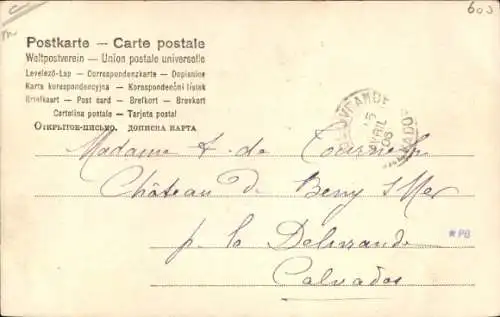 603
Postkarte — Carte postale
Weltpostverein — Union postale universelle
Levelező-Lap — Correspondenzkarte — Dopisnice
Karta korespondencyjna — Korespondenční listek
Briefkaart — Post card — Brefkort — Brevkort
Cartolina postale — Tarjeta postal
Открытое-письмо, дописна карта
AVRIL
Madame de
Château de Beny s/Mer
p. la Delivrande
*PB
Calvados